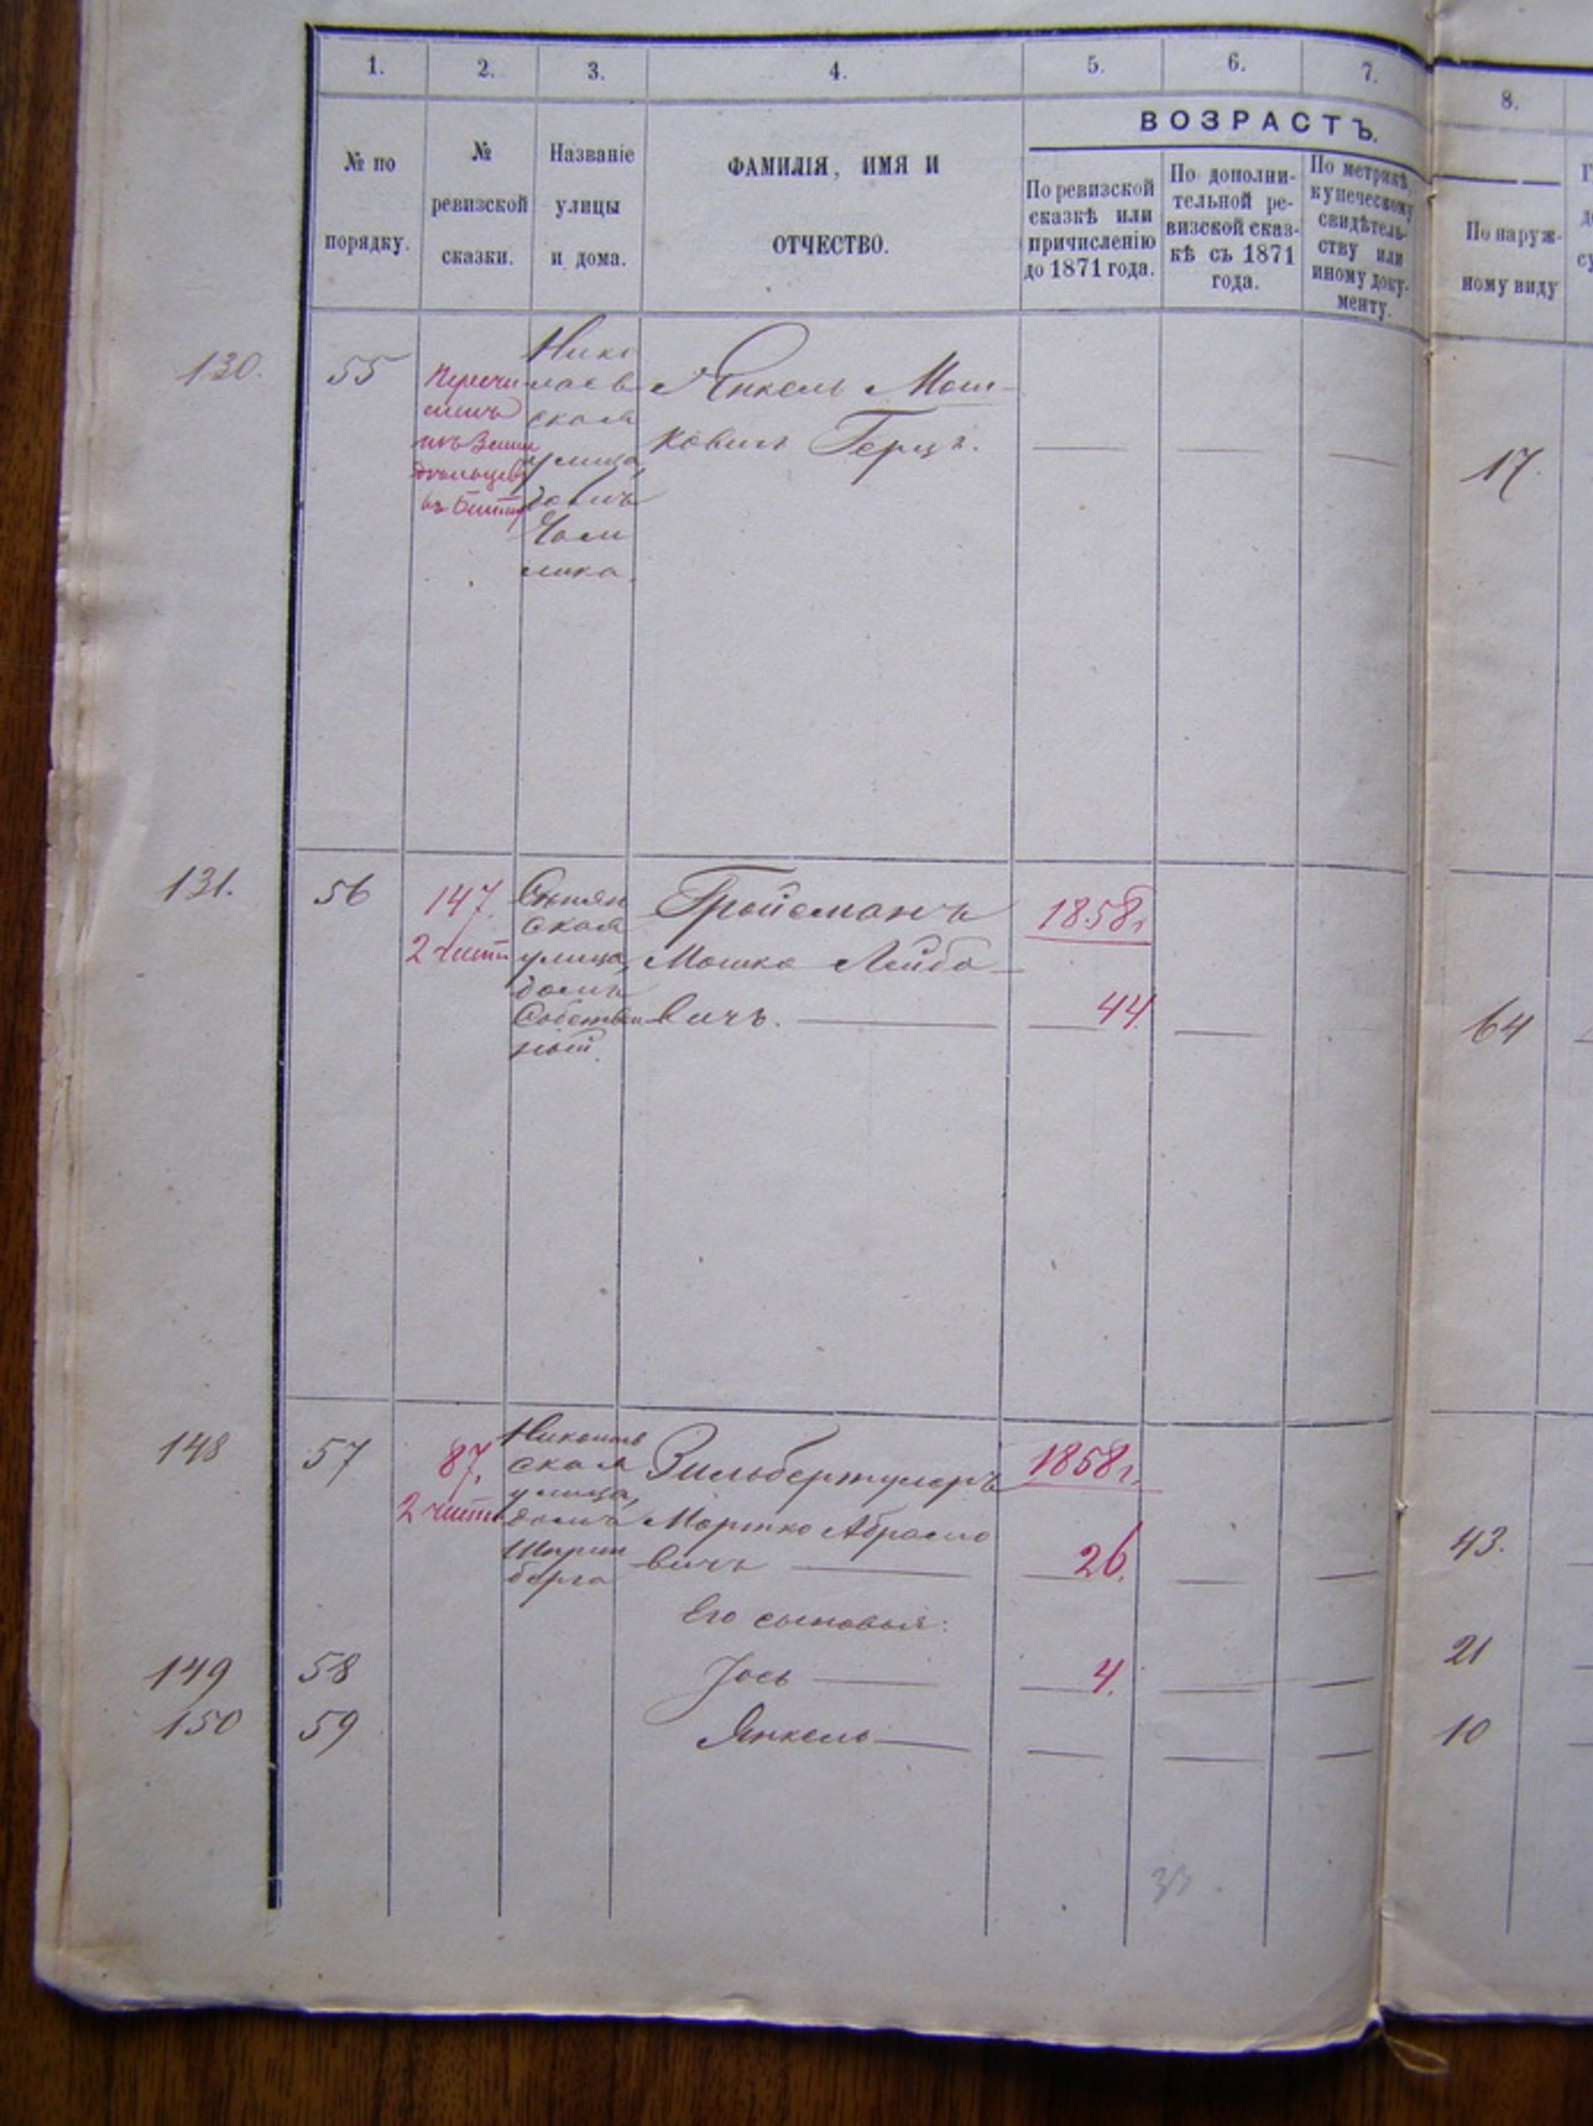 1. 2. 3. 4. 5. 6. 7. 8.
№ по порядку.
№ ревизской сказки.
Названіе улицы и дома.
ФАМИЛІЯ, ИМЯ И
ОТЧЕСТВО.
ВОЗРАСТЪ.
По ревизской
сказкѣ или
причисленію
до 1871 года.
По дополни-
тельной ре-
визской сказ-
кѣ съ 1871
года.
По метрикѣ,
купеческому
свидѣтель-
ству или
иному доку-
менту.
По наруж-
ному виду
130. 55
Нико
лаев
ская
улица,
домъ
Янкель Мош-
ковичъ Герцъ.
17.
131. 56
147.
2 части
ская
улица,
домъ
Собствен
ный.
Гройсманъ
Мошко Лейбо-
вичъ.
1858г
44
64
148 57
87.
2 части
ская
улица,
домъ
берга
Зильбертулеръ
Мортко Абрамо
вичъ
1858г.
26.
43.
Его сыновья:
149 58 Іось 4. 21
150 59 Янкель 10
33